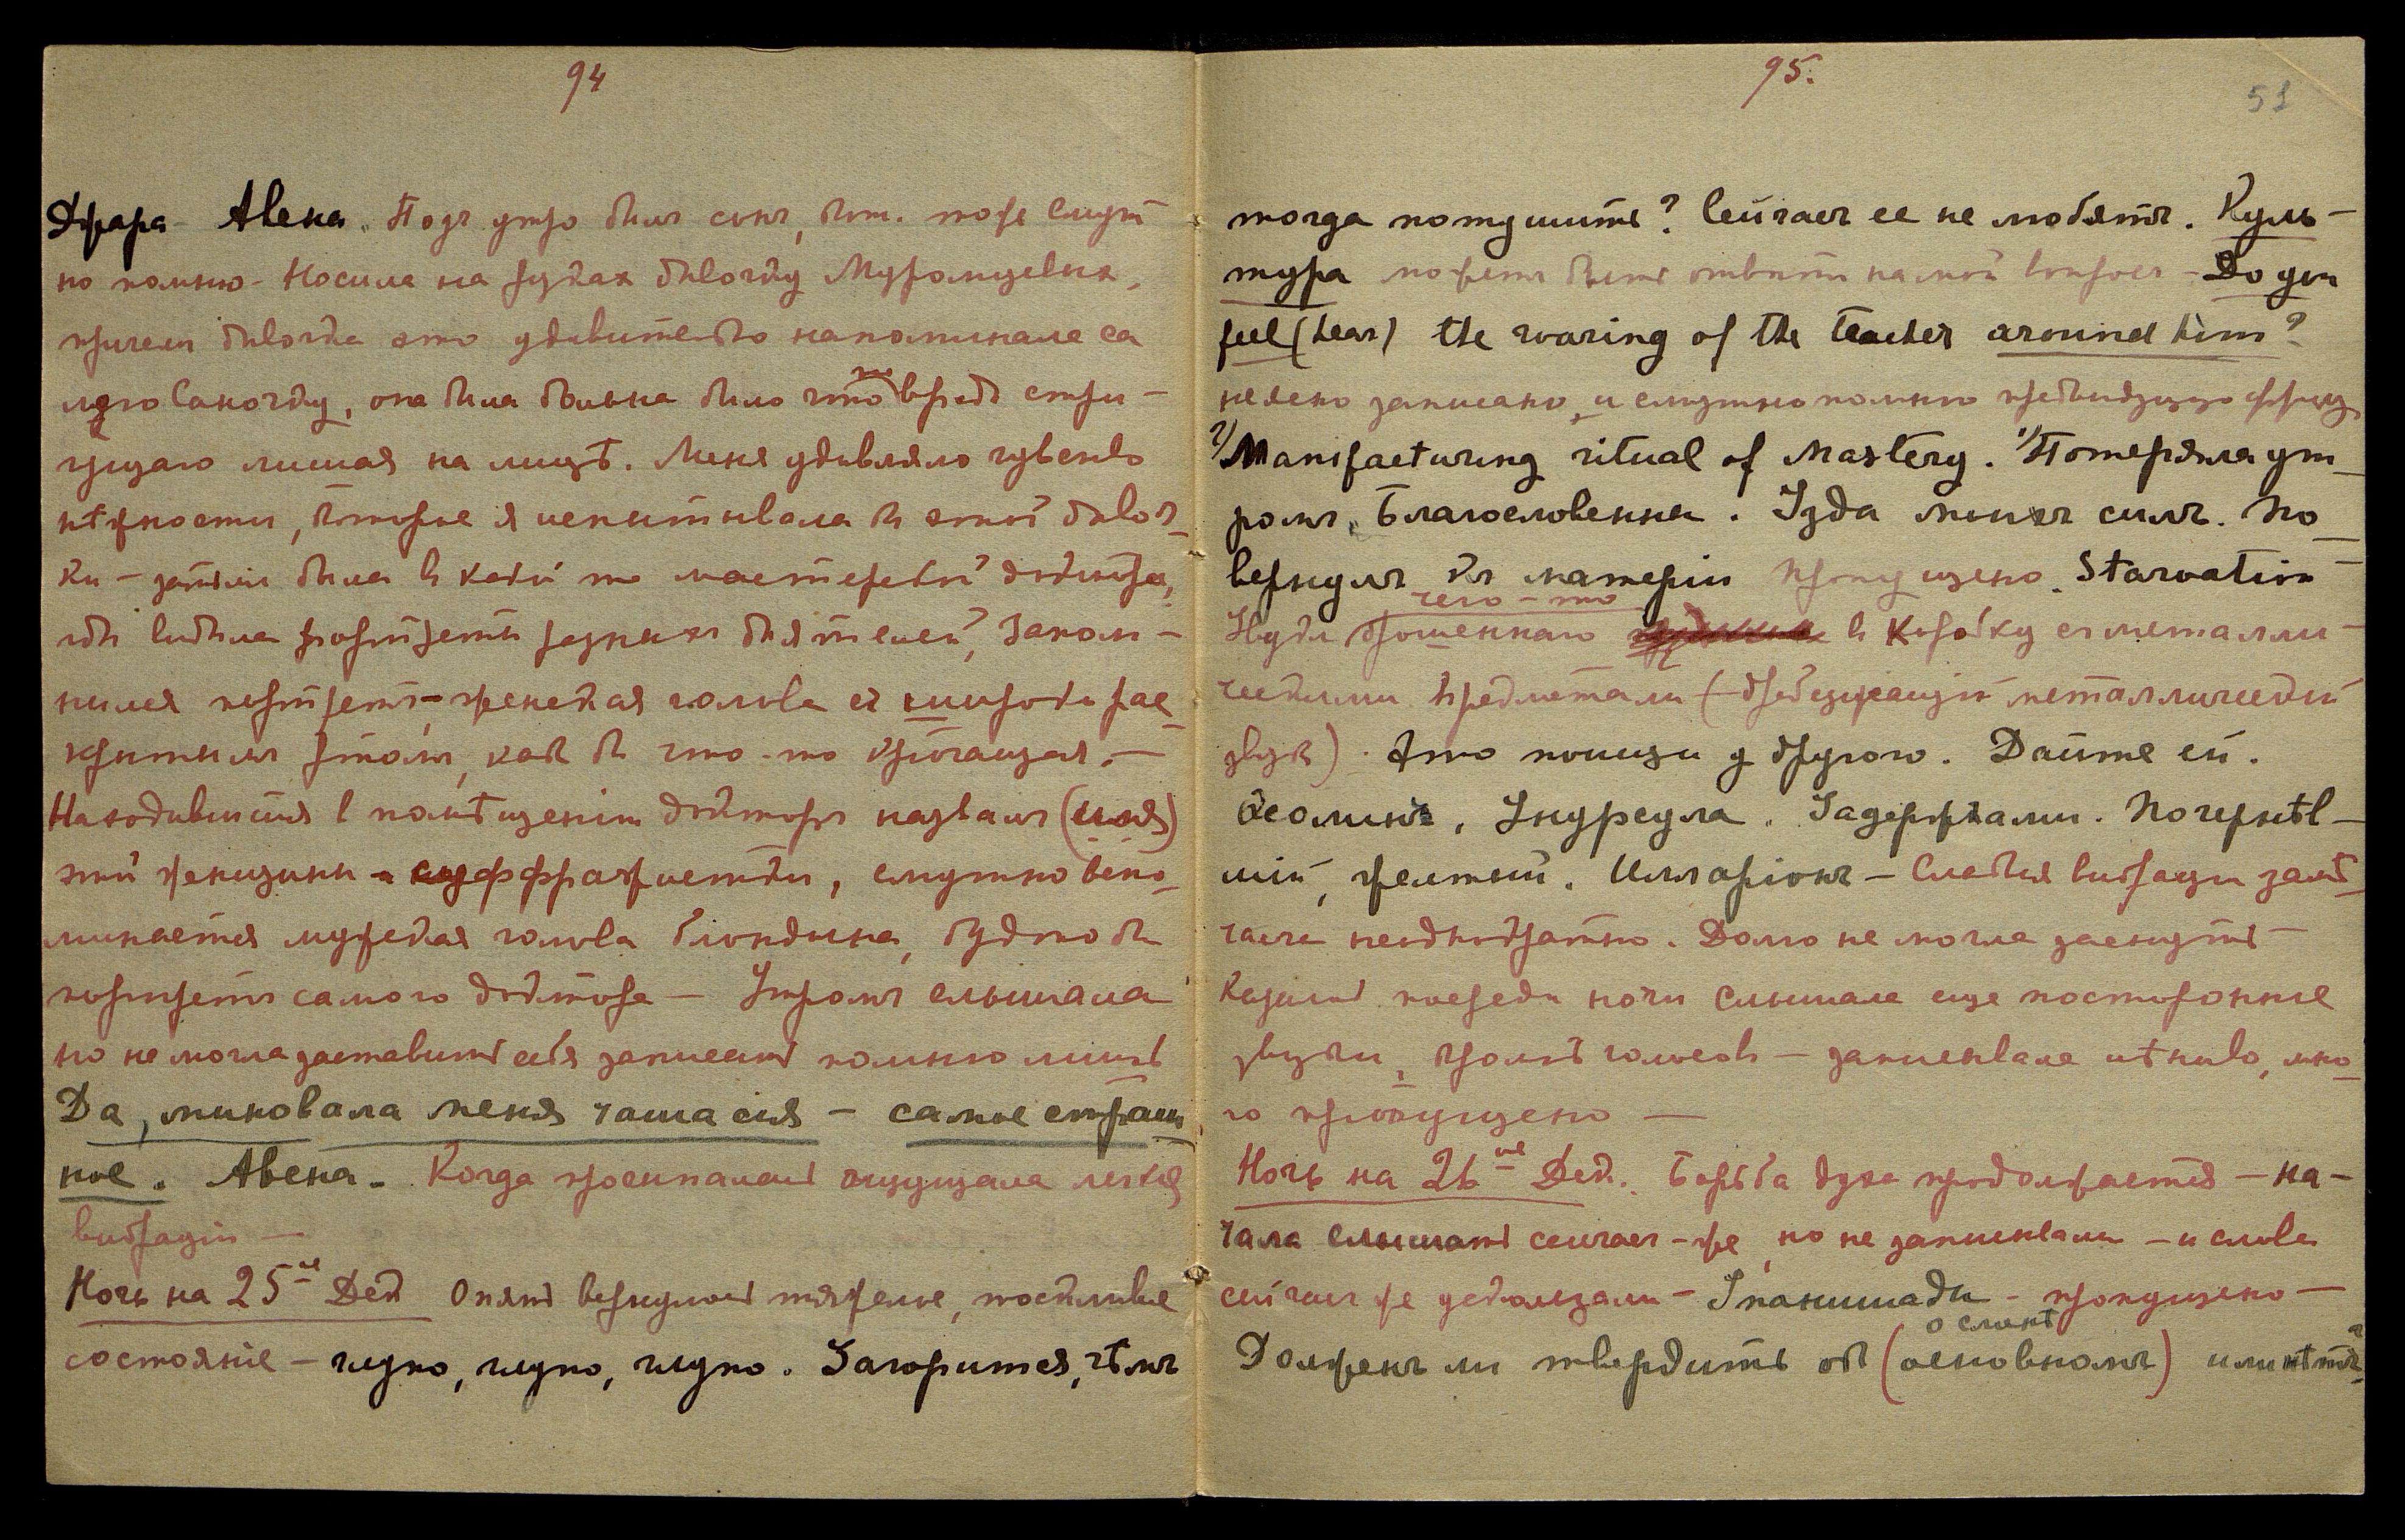 94
Джара - Авена. Подъ утро былъ сонъ, кот. тоже смут
но помню - Носила на руках дѣвочку Муромцевых,
причем дѣвочка эта удивительно напоминала са
мую Саночку, она была больна было что то вродѣ стри-
гущаго лишая на лицѣ. Меня удивляло чувство
нѣжности, которое я испытывала к этой дѣвоч-
ки - затѣм была в какой то мастерской доктора,
гдѣ видѣла портреты разных дѣятелей, Запом-
нился портретъ - женская голова съ широко рас
крытымъ ртомъ, как бы что-то кричащая. -
Находившійся в помѣщеніи докторъ назвалъ (имя)
этой женщины - суффражистки, смутно вспо-
минается мужская голова блондина, будто бы
портретъ самого доктора - Утромъ слышала
но не могла заставить себя записать помню лишь
Да, миновала меня чаша сія - самое страш
ное. Авена - Когда просыпалась ощущала легкія
вибраціи -
Ночь на 25ое Дек Опять вернулось тяжелое, тоскливое
состояніе - глупо, глупо, глупо. Загорится, чѣмъ
95.
51
тогда потушить? Сейчасъ ее не любятъ. Куль-
тура можетъ быть отвѣтъ на мой вопросъ - Do you
feel (hear) the roaring of the teacher around him?
неясно записано, и смутно помню предыдущую фразу
2/ Manifacturing ritual of Mastery. 1/ Потеряла ут-
ромъ. Благословенна. Узда моихъ силъ. По-
вернулъ къ матеріи пропущено. Starvation
чего-то
брошеннаго в коробку съ металли-
ческими предметами (- дребезжащій металлическій
звукъ). Это поищи у другого. Дайте ей.
Ѳеоминъ, Индрегула. Почернѣв-
шій, желтый. Илларіонъ - Слабыя вибраціи замѣ-
чала неоднократно. Долго не могла заснуть -
Кажись посреди ночи слышала еще посторонніе
звуки, кромѣ голосовъ - записывала лѣниво, мно-
го пропущено -
Ночь на 26ое Дек. Борьба духа продолжается - на-
чала слышать сейчасъ-же, но не записывала - и слова
сейчасъ же ускользали - Упанишады - пропущено -
о смыслѣ
Долженъ ли твердить об (основномъ) или нѣтъ